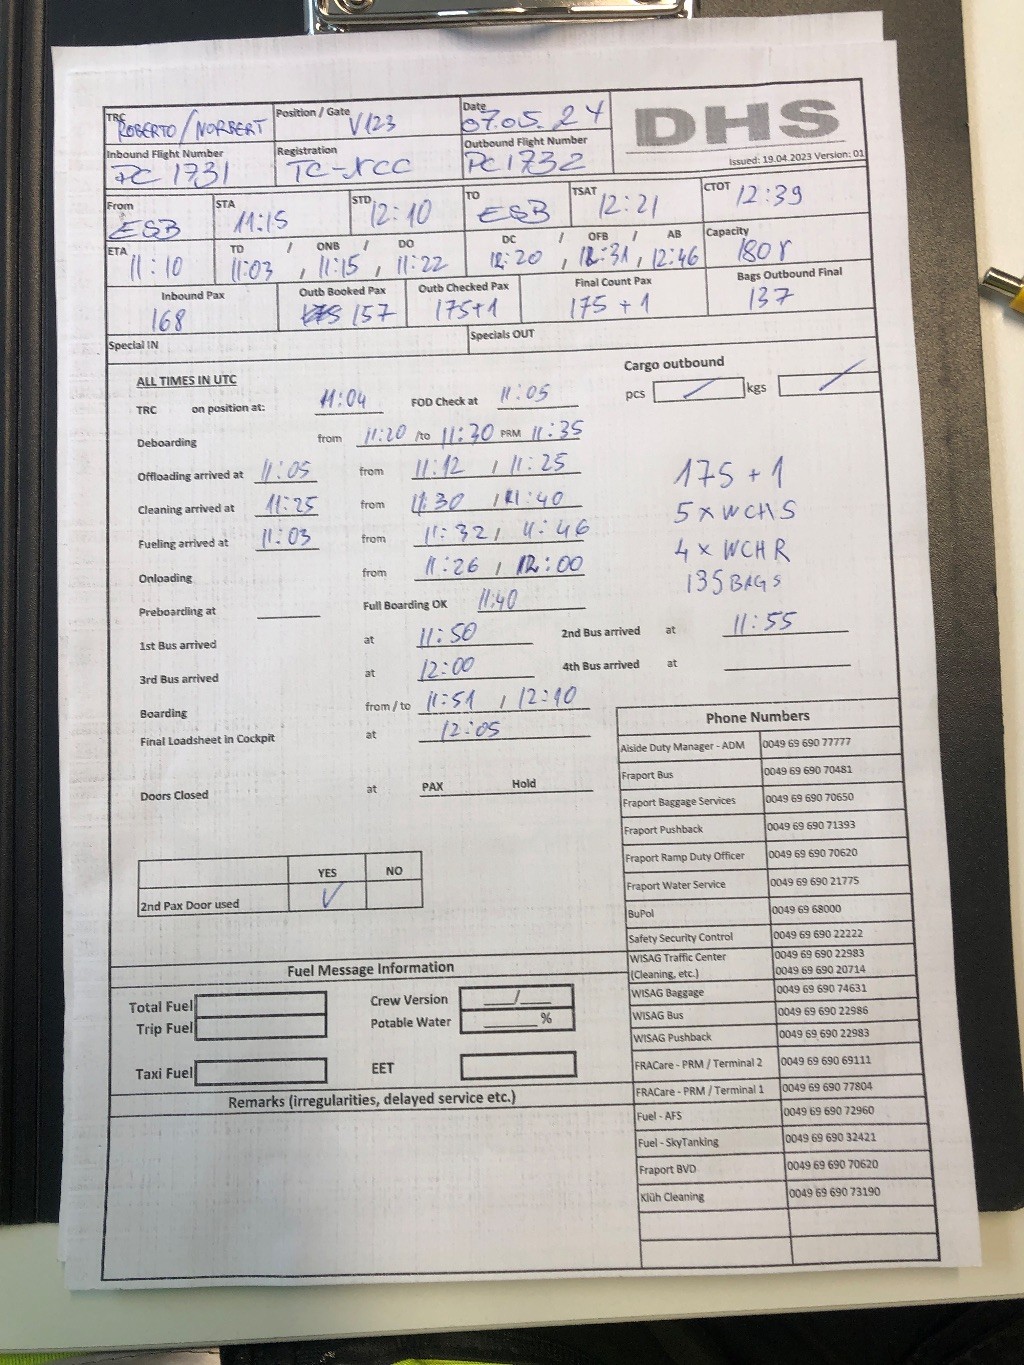 TRC ROBERTO / NORBERT
Position / Gate V123
Date 07.05.24
DHS
Issued: 19.04.2023 Version: 01
Inbound Flight Number PC 1731
Registration TC-NCC
Outbound Flight Number PC 1732
From ESB
STA 11:15
STD 12:10
TO ESB
TSAT 12:21
CTOT 12:39
ETA 11:10
TD / ONB / DO
11:03 , 11:15 , 11:22
DC / OFB / AB
12:20 , 12:31 , 12:46
Capacity 180Y
Inbound Pax 168
Outb Booked Pax 157
Outb Checked Pax 175+1
Final Count Pax 175 + 1
Bags Outbound Final 137
Special IN
Specials OUT
ALL TIMES IN UTC
Cargo outbound
pcs / kgs /
TRC on position at: 11:04 FOD Check at 11:05
Deboarding from 11:20 /to 11:30 PRM 11:35
Offloading arrived at 11:05 from 11:12 / 11:25
Cleaning arrived at 11:25 from 11:30 / 11:40
Fueling arrived at 11:03 from 11:32 / 11:46
Onloading from 11:26 / 12:00
175 + 1
5 x WCHS
4 x WCHR
135 BAGS
Preboarding at Full Boarding OK 11:40
1st Bus arrived at 11:50 2nd Bus arrived at 11:55
3rd Bus arrived at 12:00 4th Bus arrived at
Boarding from / to 11:51 / 12:10
Final Loadsheet in Cockpit at 12:05
Doors Closed at PAX Hold
YES NO
2nd Pax Door used V
Fuel Message Information
Total Fuel
Crew Version /
Trip Fuel
Potable Water %
Taxi Fuel
EET
Remarks (irregularities, delayed service etc.)
Phone Numbers
Aiside Duty Manager - ADM 0049 69 690 77777
Fraport Bus 0049 69 690 70481
Fraport Baggage Services 0049 69 690 70650
Fraport Pushback 0049 69 690 71393
Fraport Ramp Duty Officer 0049 69 690 70620
Fraport Water Service 0049 69 690 21775
BuPol 0049 69 68000
Safety Security Control 0049 69 690 22222
WISAG Traffic Center 0049 69 690 22983
(Cleaning, etc.) 0049 69 690 20714
WISAG Baggage 0049 69 690 74631
WISAG Bus 0049 69 690 22986
WISAG Pushback 0049 69 690 22983
FRACare - PRM / Terminal 2 0049 69 690 69111
FRACare - PRM / Terminal 1 0049 69 690 77804
Fuel - AFS 0049 69 690 72960
Fuel - SkyTanking 0049 69 690 32421
Fraport BVD 0049 69 690 70620
Klüh Cleaning 0049 69 690 73190